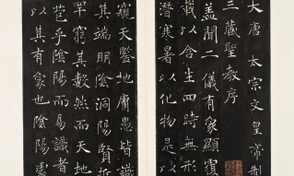 大唐太宗文皇帝制
三藏聖教序
蓋聞二儀有象顯覆
載以含生四時無形
潛寒暑以化物是以
窺天鑒地庸愚皆識
其端明陰洞陽賢哲
罕窮其數然而天地
苞乎陰陽而易識者
以其有象也陰陽處